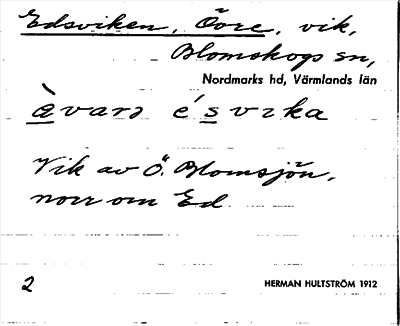 Edsviken, Övre, vik,
Blomskogs sn,
Nordmarks hd, Värmlands län
àvarə é svika
Vik av Ö. Blomsjön,
norr om Ed
2
HERMAN HULTSTRÖM 1912